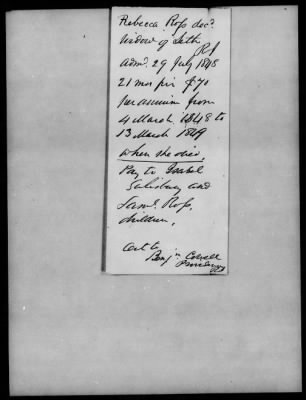 Rebecca Ross decd.
Widow of Seth
R I
admd. 29 July 1848
21 mos pr $70
per annum from
4 March 1848 to
13 March 1849
when she died.
Pay to Isabel
Salisbury and
Saml. Ross,
children,
Cert to
Benjn. Cowell
Providence